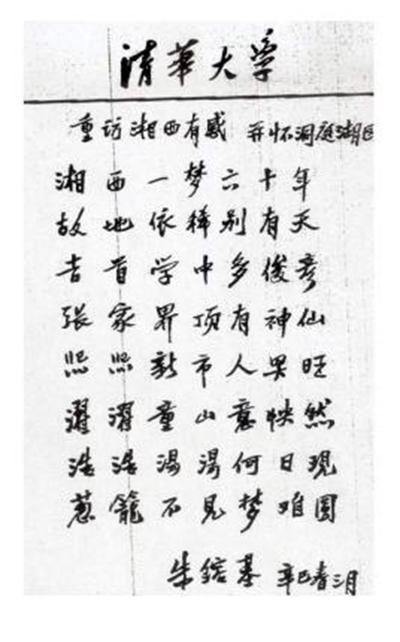 清華大学
重访湘西有感 并怀洞庭湖区
湘西一梦六十年
故地依稀别有天
吉首学中多俊彦
张家界顶有神仙
熙熙新市人兴旺
濯濯童山意怏然
浩浩湯湯何日现
葱籠不见梦难圆
朱镕基 辛巳春三月